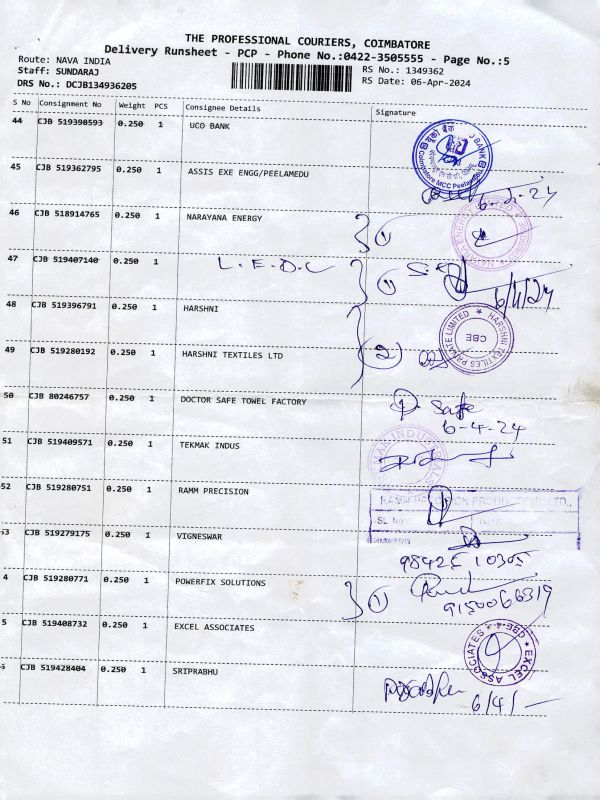 THE PROFESSIONAL COURIERS, COIMBATORE
Delivery Runsheet - PCP - Phone No.:0422-3505555 - Page No.:5
Route: NAVA INDIA
Staff: SUNDARAJ
RS No.: 1349362
DRS No.: DCJB134936205
RS Date: 06-Apr-2024
S No Consignment No Weight PCS Consignee Details Signature
44 CJB 519398593 0.250 1 UCO BANK
यूको बैंक
BANK
Coimbatore MCC Peelamedu
45 CJB 519362795 0.250 1 ASSIS EXE ENGG/PEELAMEDU
46 CJB 518914765 0.250 1 NARAYANA ENERGY 1
47 CJB 519407140 0.250 1 L.E.D.C 1
6/4/24
48 CJB 519396791 0.250 1 HARSHNI
HARSHNI TEXTILES PRIVATE LIMITED ★
CBE
49 CJB 519280192 0.250 1 HARSHNI TEXTILES LTD 2
50 CJB 80246757 0.250 1 DOCTOR SAFE TOWEL FACTORY Safe
6-4-24
51 CJB 519409571 0.250 1 TEKMAK INDUS
52 CJB 519280751 0.250 1 RAMM PRECISION
SL No
53 CJB 519279175 0.250 1 VIGNESWAR
4 CJB 519280771 0.250 1 POWERFIX SOLUTIONS 1
9150066319
5 CJB 519408732 0.250 1 EXCEL ASSOCIATES
★ EXCEL ASSOCIATES ★ CBE-4
CJB 519428404 0.250 1 SRIPRABHU
6/4/-